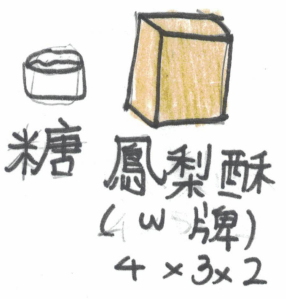 糖
鳳梨酥
(W牌)
4×3×2